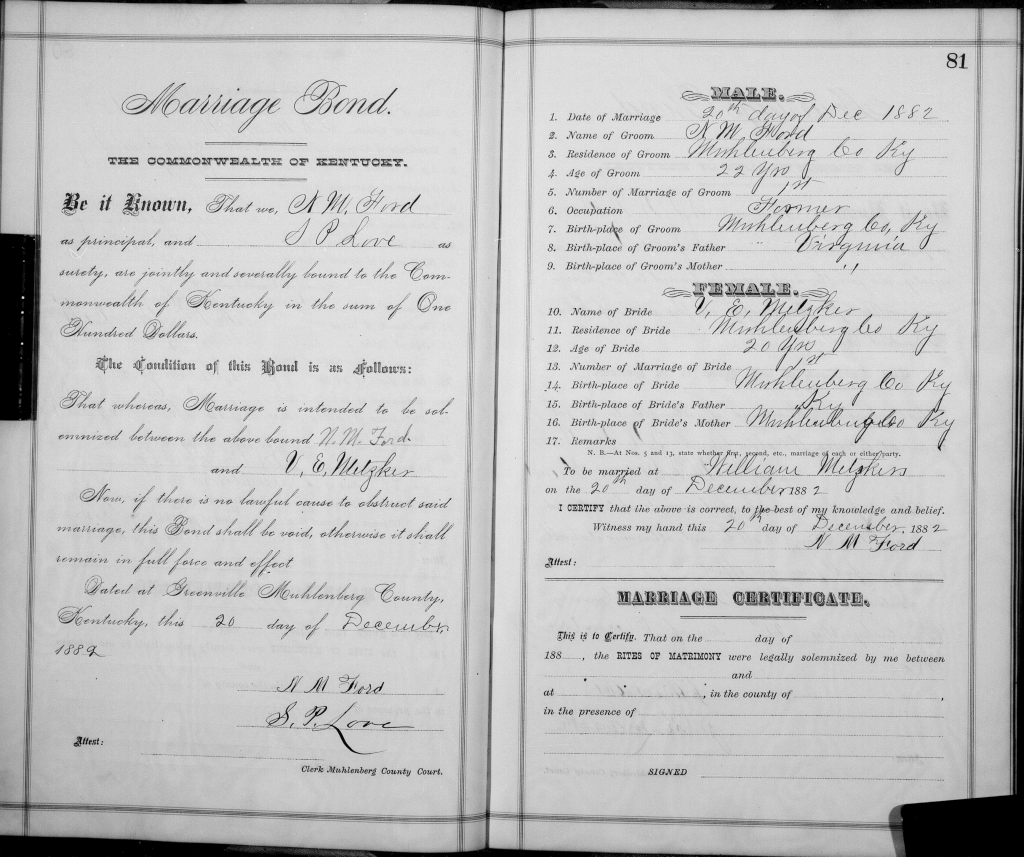 Marriage Bond.
THE COMMONWEALTH OF KENTUCKY.
Be it Known, That we, N. M. Ford
as principal, and S P Love as
surety, are jointly and severally bound to the Com-
monwealth of Kentucky in the sum of One
Hundred Dollars.
The Condition of this Bond is as Follows:
That whereas, Marriage is intended to be sol-
emnized between the above bound N. M. Ford
and V. E. Metzker
Now, if there is no lawful cause to obstruct said
marriage, this Bond shall be void, otherwise it shall
remain in full force and effect
Dated at Greenville Muhlenberg County,
Kentucky, this 20 day of December
1882
N M Ford
S. P. Love
Attest:
Clerk Muhlenberg County Court.
81
MALE.
1. Date of Marriage 20th day of Dec 1882
2. Name of Groom N M Ford
3. Residence of Groom Muhlenberg Co Ky
4. Age of Groom 22 Yrs
5. Number of Marriage of Groom 1st
6. Occupation Farmer
7. Birth-place of Groom Muhlenberg Co, Ky
8. Birth-place of Groom's Father Virginia
9. Birth-place of Groom's Mother "
FEMALE.
10. Name of Bride V. E. Metzker
11. Residence of Bride Muhlenberg Co Ky
12. Age of Bride 20 Yrs
13. Number of Marriage of Bride 1st
14. Birth-place of Bride Muhlenberg Co Ky
15. Birth-place of Bride's Father Ky
16. Birth-place of Bride's Mother Muhlenberg Co Ky
17. Remarks
N. B.—At Nos. 5 and 13, state whether first, second, etc., marriage of each or either party.
To be married at William Metzkers
on the 20th day of December 1882
I CERTIFY that the above is correct, to the best of my knowledge and belief.
Witness my hand this 20th day of December, 1882
N M Ford
Attest:
MARRIAGE CERTIFICATE.
This is to Certify. That on the day of
188 , the RITES OF MATRIMONY were legally solemnized by me between
and
at , in the county of ,
in the presence of
SIGNED